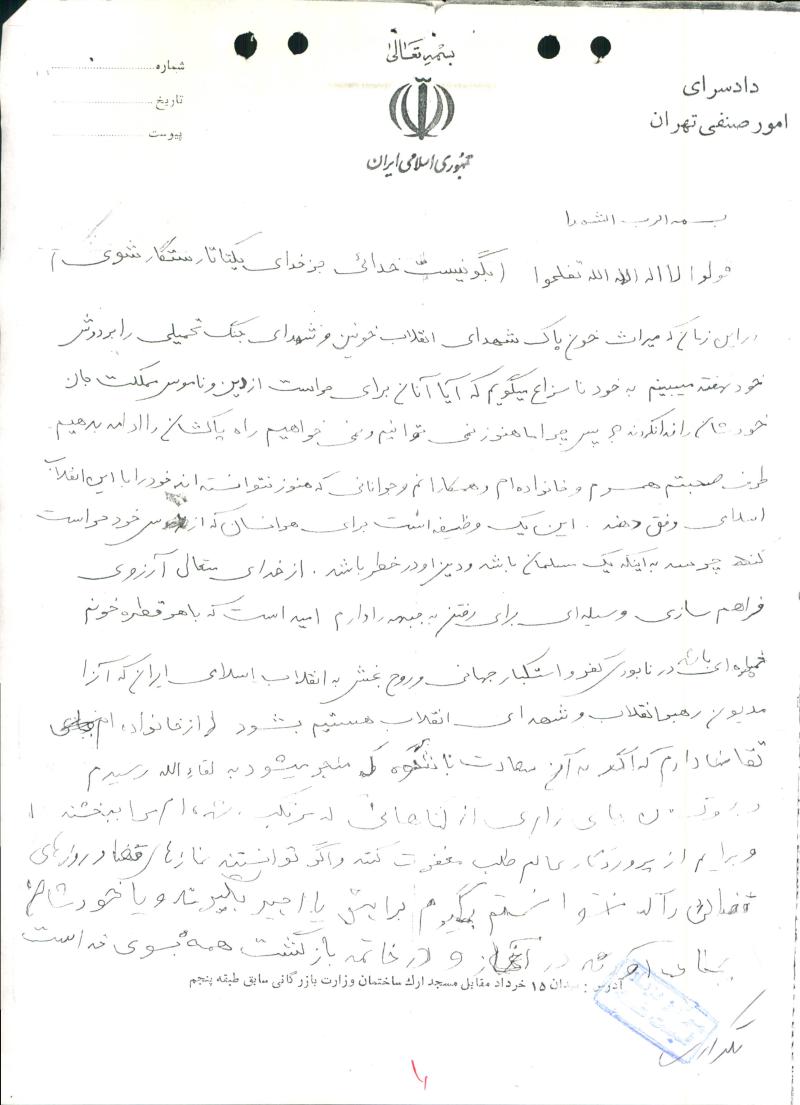 بسمه تعالی
جمهوری اسلامی ایران
دادسرای
امور صنفی تهران
شماره
تاریخ
پیوست
بسمه الرب الشهدا
قولوا لا اله الا الله تفلحوا (بگو نیست خدائی جز خدای یکتا تا رستگار شوی)
در این زمان که میراث خون پاک شهدای انقلاب خونین و شهدای جنگ تحمیلی را بر دوش
خود نهفته میبینم به خود ناسزا میگویم که آیا آنان برای حراست از دین و ناموس مملکت جان
خودشان را فدا نکردند؟ پس چرا ما هنوز نمی توانیم و نمی خواهیم راه پاکشان را ادامه بدهیم
طرف صحبتم همسرم و خانواده ام و همکارانم و جوانانی که هنوز نتوانسته اند خود را با این انقلاب
اسلامی وفق دهند. این یک وظیفه است برای هر انسان که از خود حراست
کند چه رسد به اینکه یک مسلمان باشد و دین او در خطر باشد. از خدای متعال آرزوی
فراهم سازی وسیله ای برای رفتن به جبهه را دارم امید است که با هر قطره خونم
خمپاره ای باشد در نابودی کفر و استکبار جهانی و روح بخش به انقلاب اسلامی ایران که آنرا
مدیون رهبر انقلاب و شهدای انقلاب هستیم بشود از خانواده ام
تقاضا دارم که اگر به آن سعادت با شکوه که منجر میشود به لقاءالله رسیدم
زاری از گناهانی که مرتکب شده ام مرا ببخشند
و برایم از پروردگار عالم طلب مغفرت کنند و اگر توانستند نمازهای قضا و روزهای
قضائی را که نتوانستم بگیرم برایش یا اجیر بگیرند و یا خودشان
بجای آورند در آغاز و در خاتمه بازگشت همه بسوی خداست
آدرس: میدان ۱۵ خرداد مقابل مسجد ارك ساختمان وزارت بازرگانی سابق طبقه پنجم